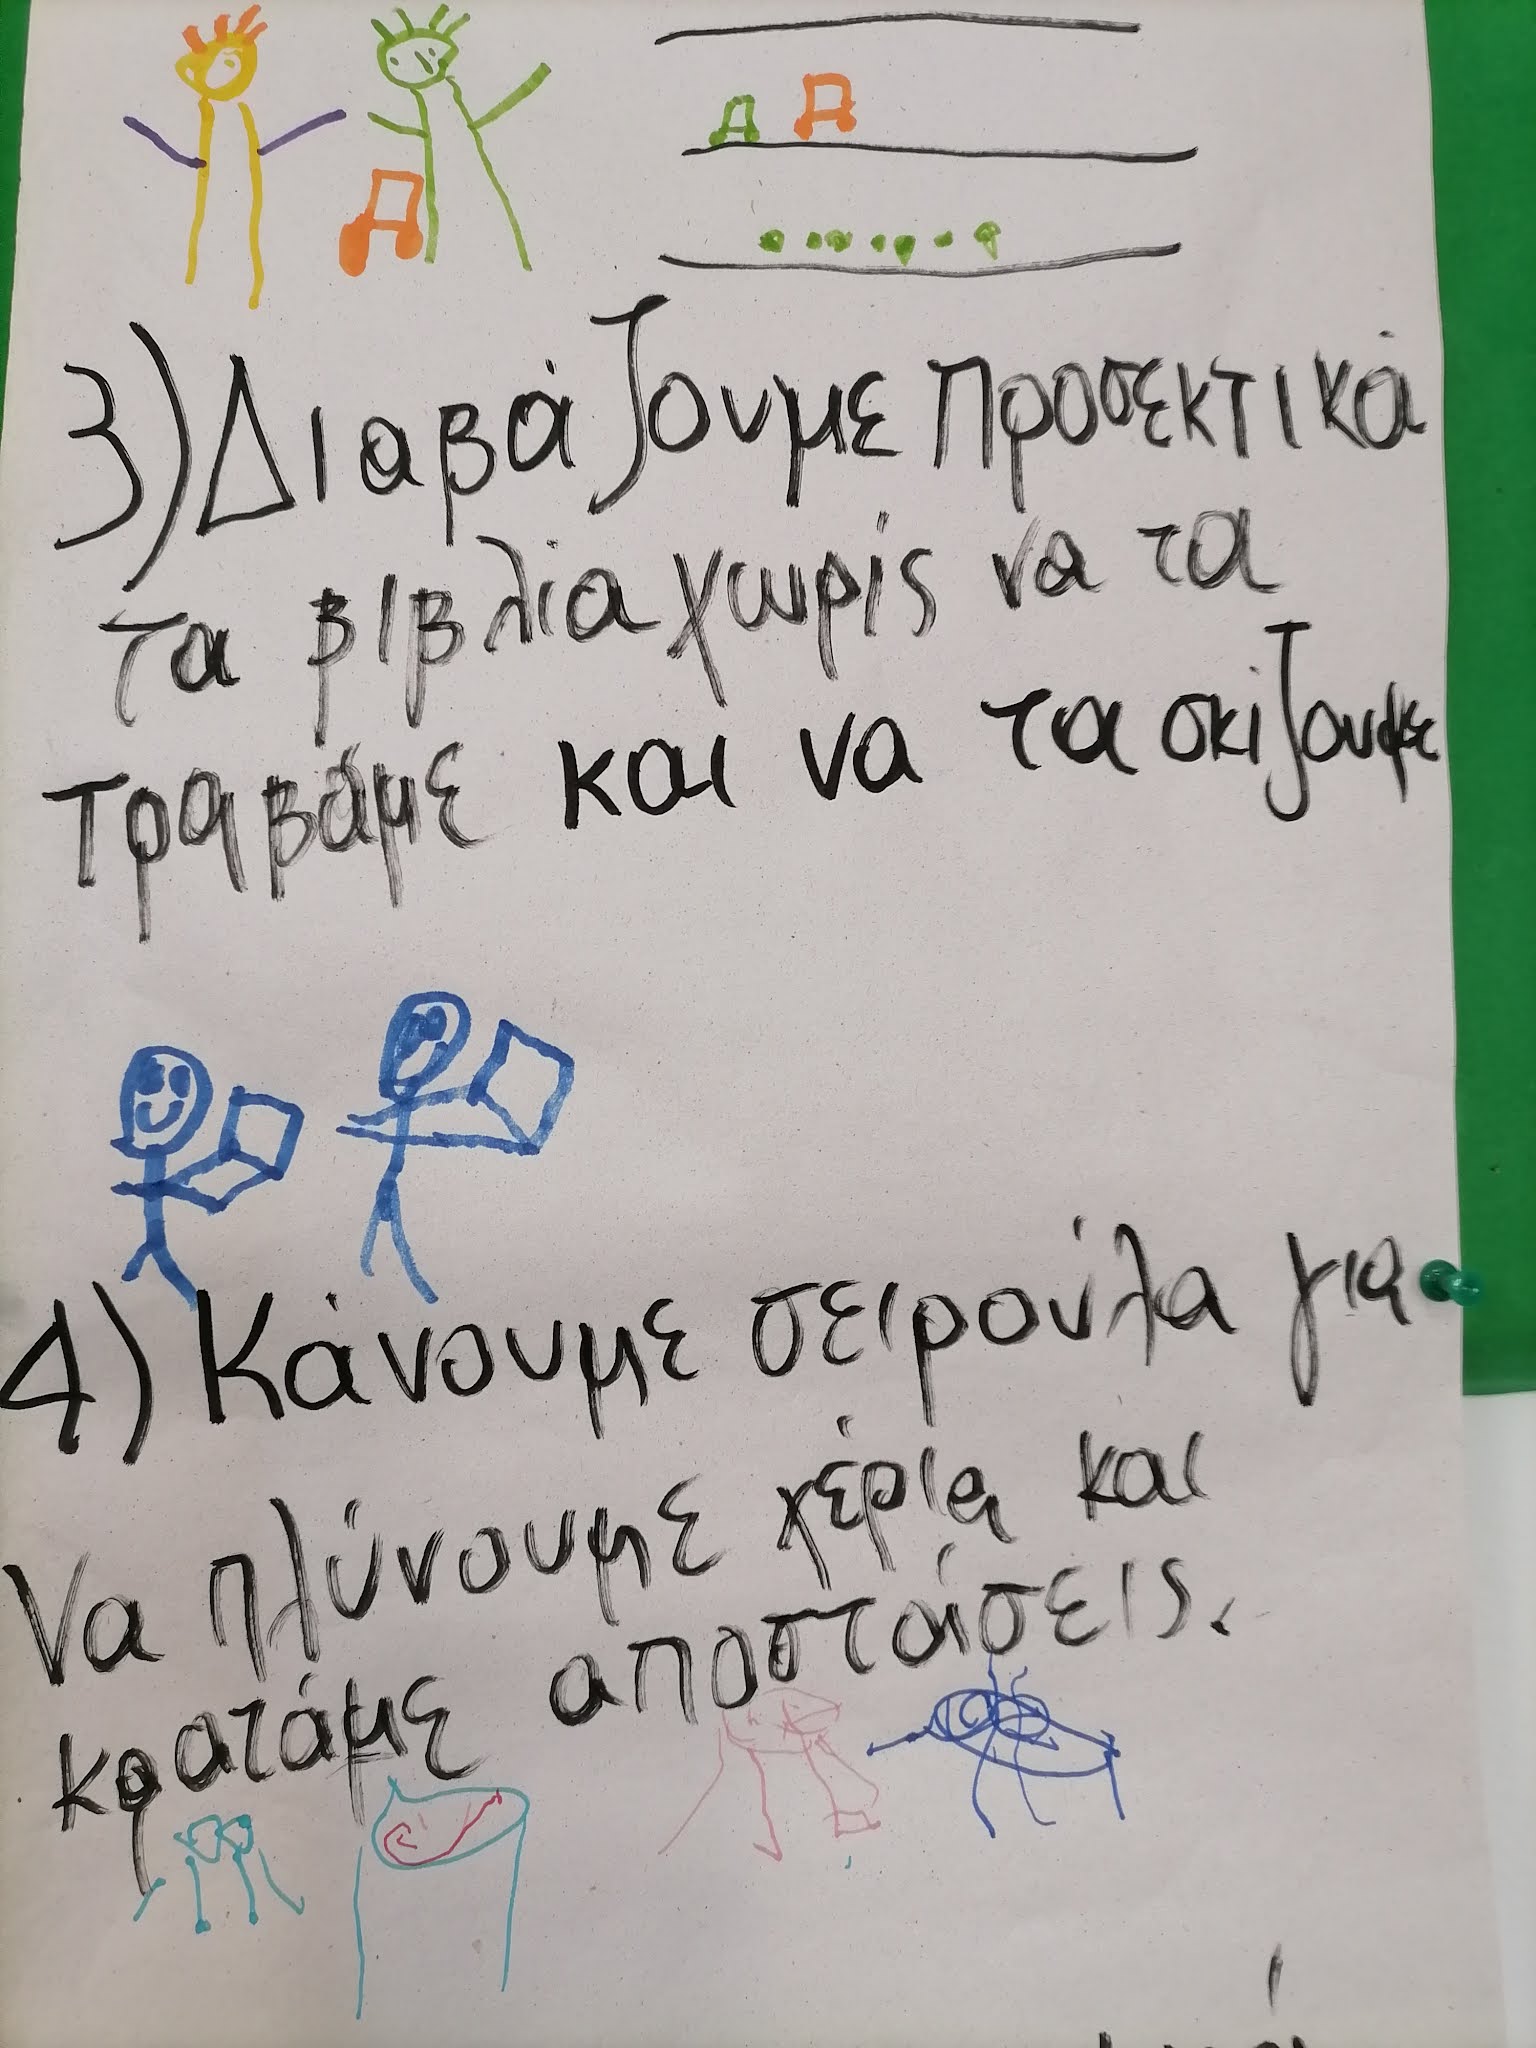 3) Διαβάζουμε προσεκτικά
τα βιβλία χωρίς να τα
τραβάμε και να τα σκίζουμε
4) Κάνουμε σειρούλα για
να πλύνουμε χέρια και
κρατάμε αποστάσεις.